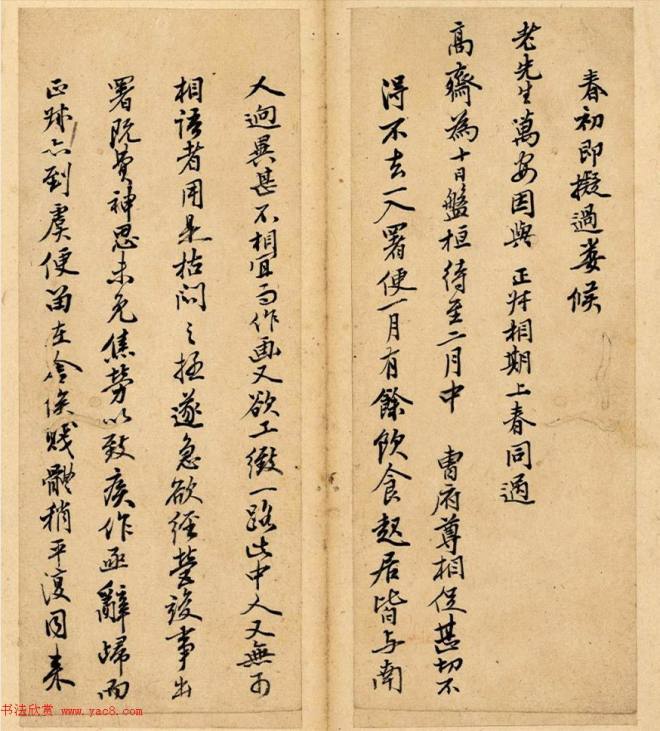 春初即擬過婁候
老先生萬安因與 正叔相期上春同過
高齋為十日盤桓待至二月中 曹府尊相促甚切不
得不去一入署便一月有餘飲食起居皆与南
人逈異甚不相宜而作画又欲工緻一路此中人又無可
相語者用是枯悶之極遂急欲經營竣事出
署既費神思未免焦勞以致疾作亟辭歸而
正叔亦到虞便留在舍俟賤體稍平復同来
书法欣赏 www.yac8.com